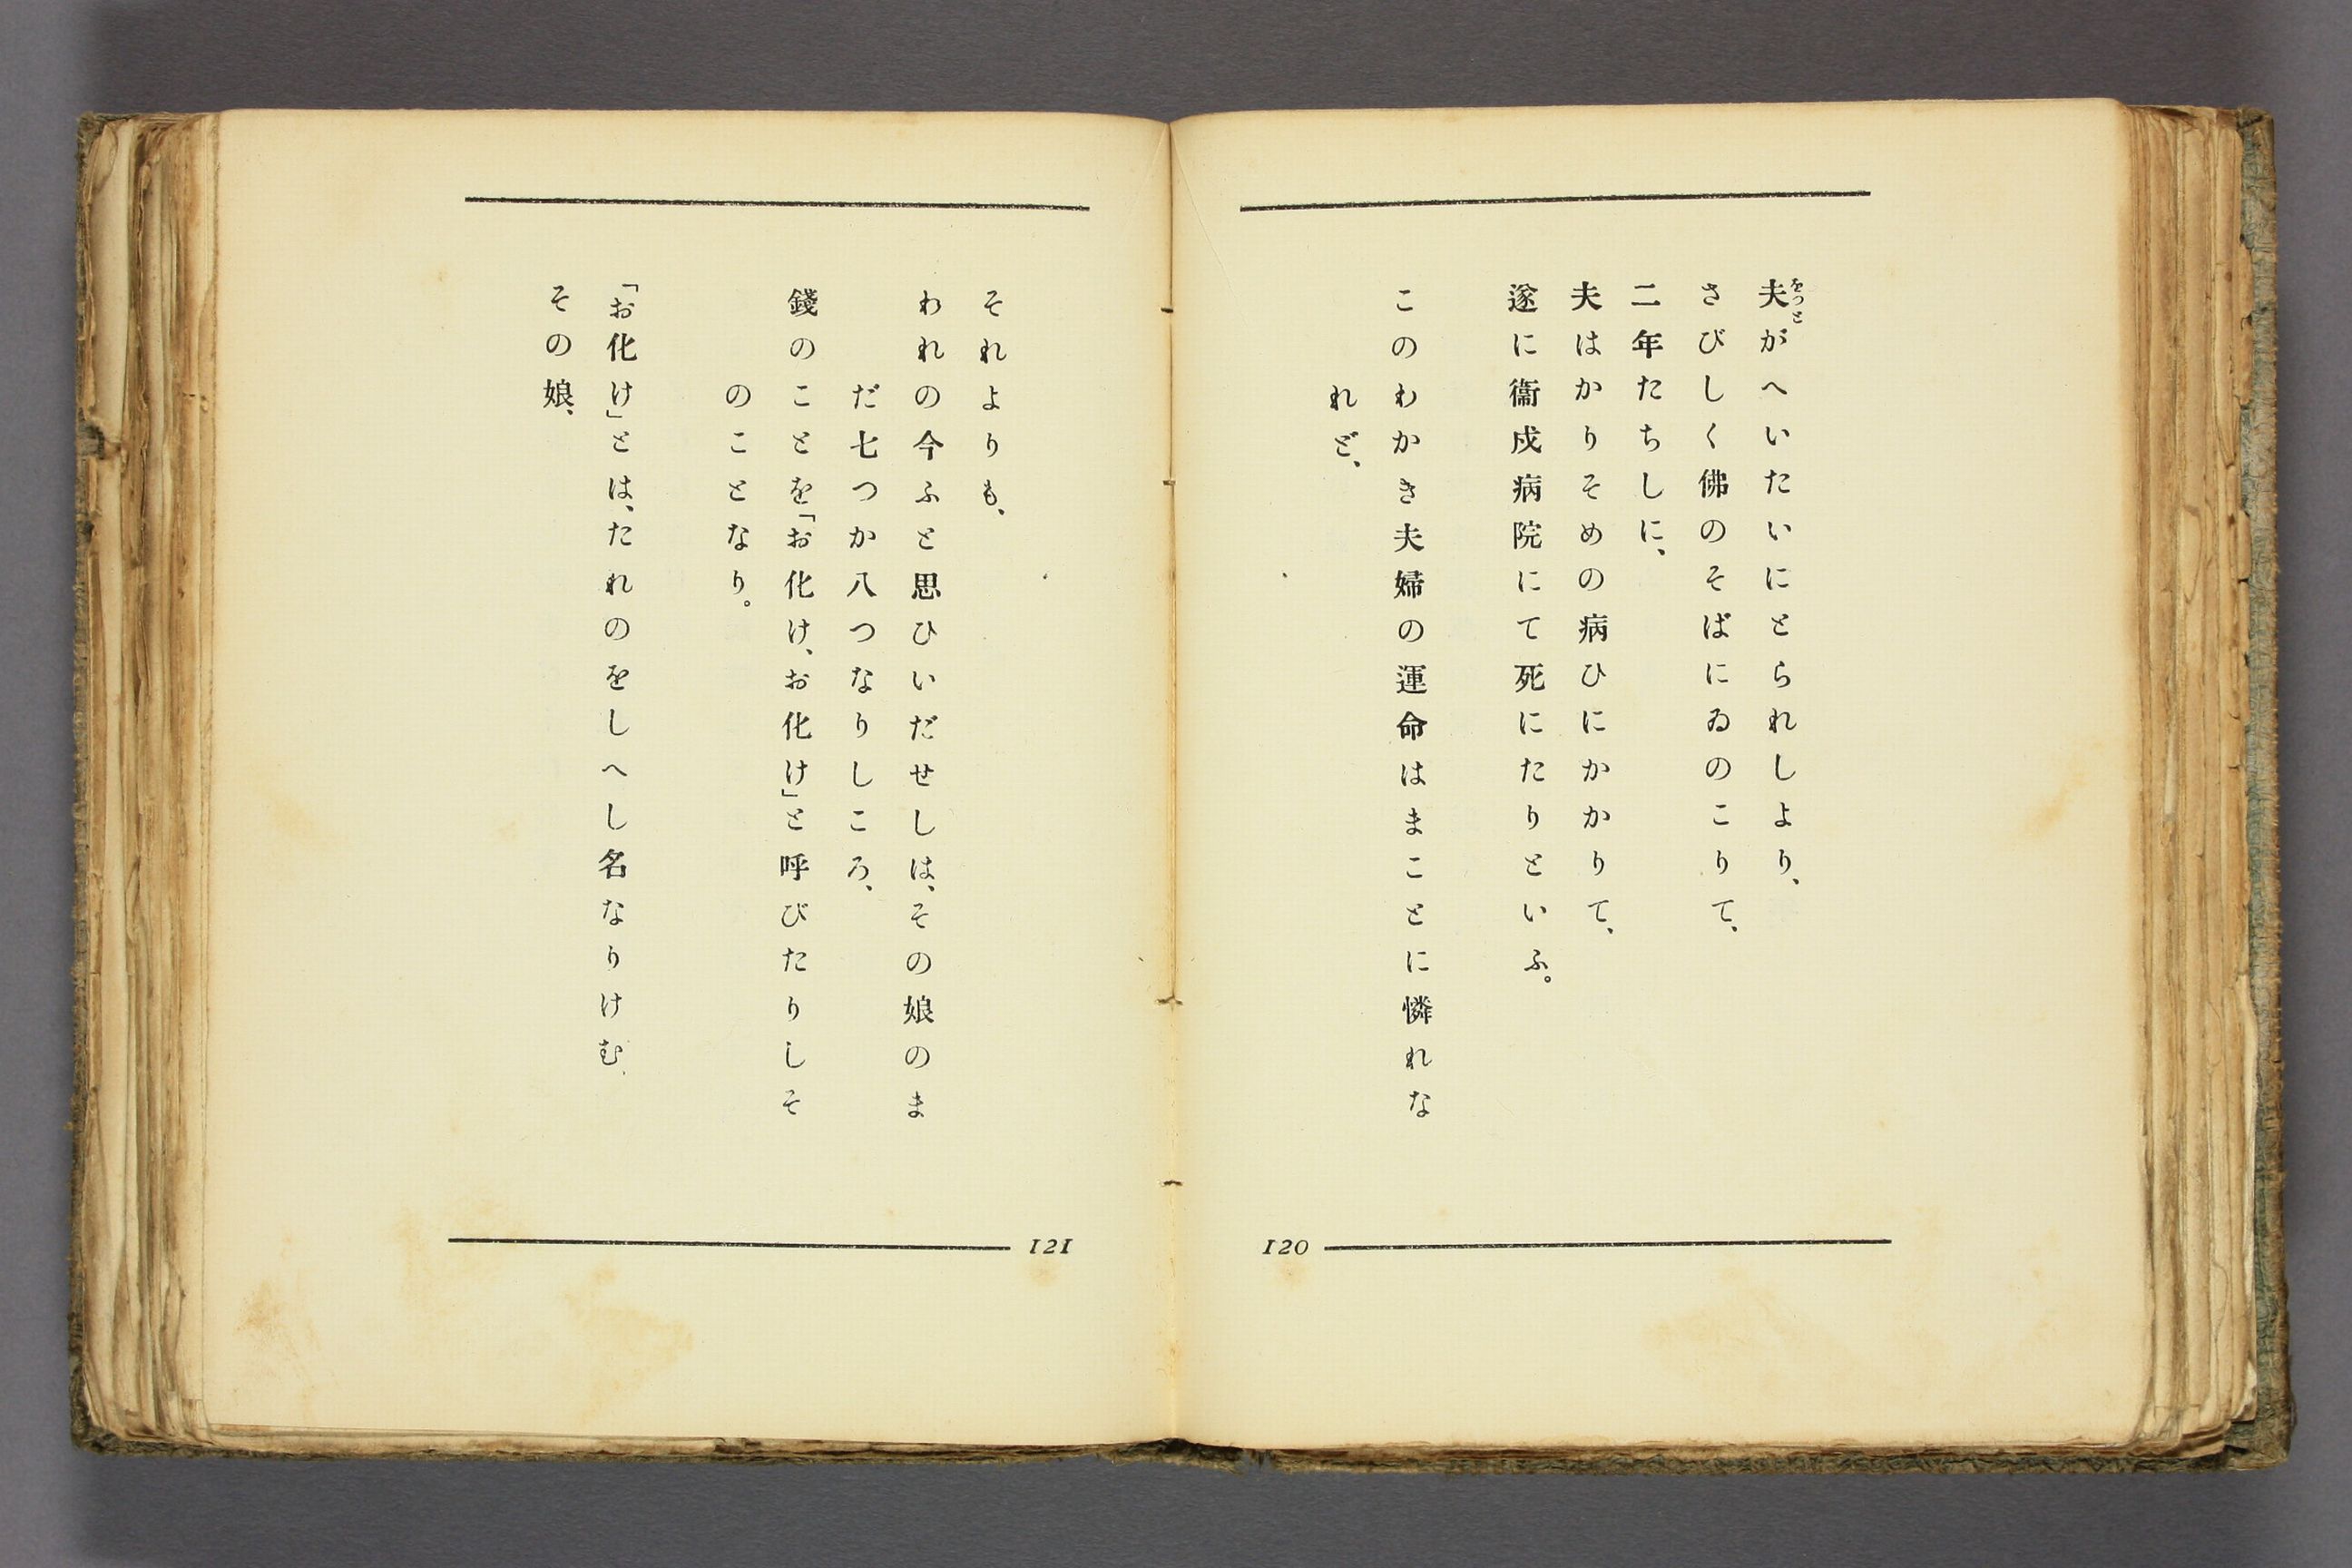 夫がへいたいにとられしより、
をつと
さびしく佛のそばにゐのこりて、
二年たちしに、
夫はかりそめの病ひにかかりて、
遂に衞戍病院にて死にたりといふ。
このわかき夫婦の運命はまことに憐れな
れど、
120
それよりも、
われの今ふと思ひいだせしは、その娘のま
だ七つか八つなりしころ、
錢のことを「お化け、お化け」と呼びたりしそ
のことなり。
「お化け」とは、たれのをしへし名なりけむ、
その娘、
121